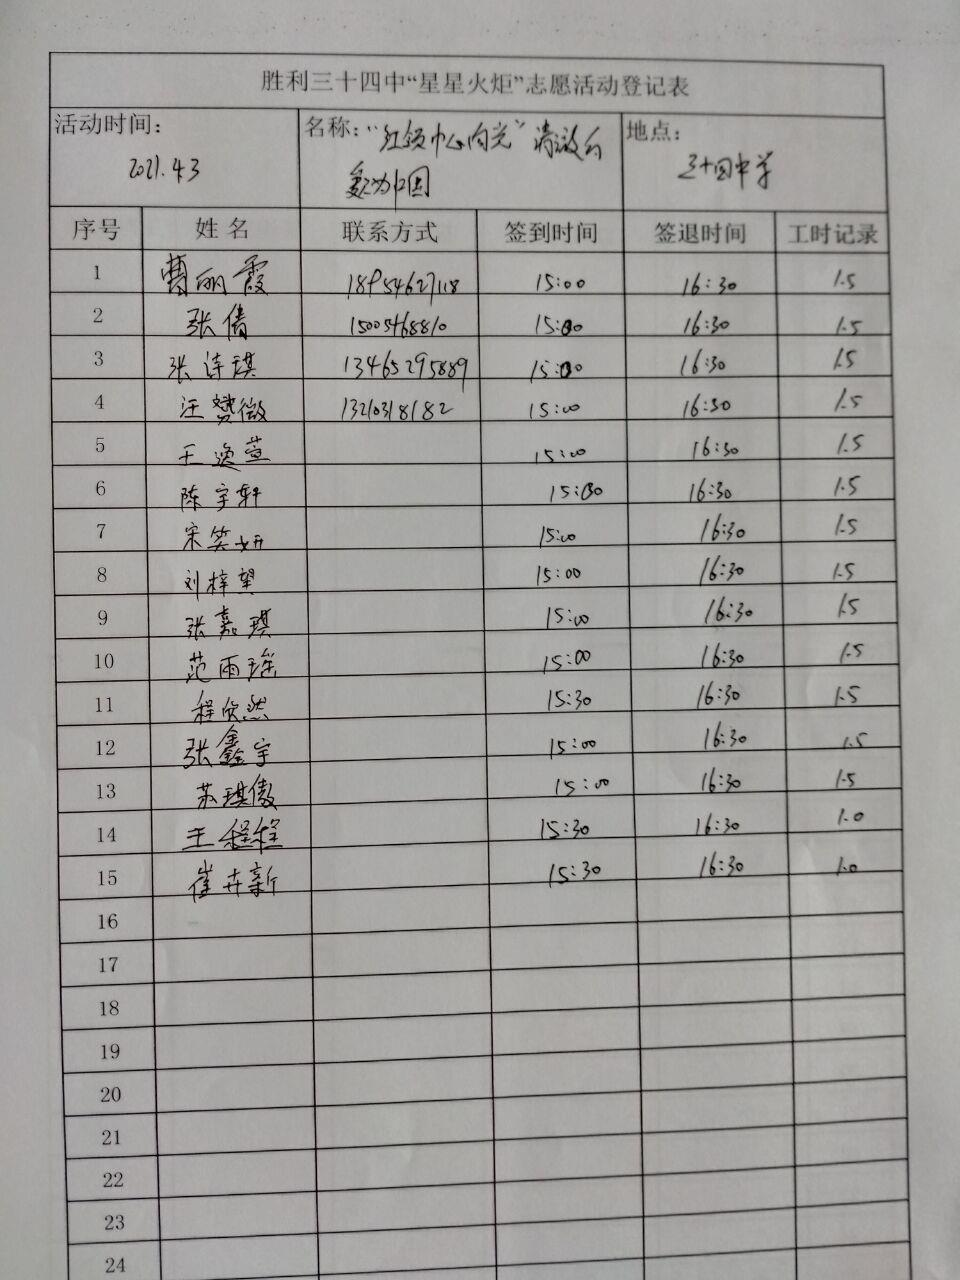 胜利三十四中“星星火炬”志愿活动登记表
活动时间: 名称: “红领巾心向光” 清澈白 地点:
2021.4.3 三十四中学
序号 姓名 联系方式 签到时间 签退时间 工时记录
1 曹丽霞 18954627118 15:00 16:30 1.5
2 张倩 15005468810 15:00 16:30 1.5
3 张诗琪 13465295889 15:00 16:30 1.5
4 汪赞微 13210318182 15:00 16:30 1.5
5 王逸萱 15:00 16:30 1.5
6 陈宇轩 15:00 16:30 1.5
7 宋笑妍 15:00 16:30 1.5
8 刘梓望 15:00 16:30 1.5
9 张嘉琪 15:00 16:30 1.5
10 范雨瑶 15:00 16:30 1.5
11 程欣然 15:30 16:30 1.5
12 张鑫宇 15:00 16:30 1.5
13 苏琪傲 15:00 16:30 1.5
14 王程程 15:30 16:30 1.0
15 崔卉新 15:30 16:30 1.0
16
17
18
19
20
21
22
23
24